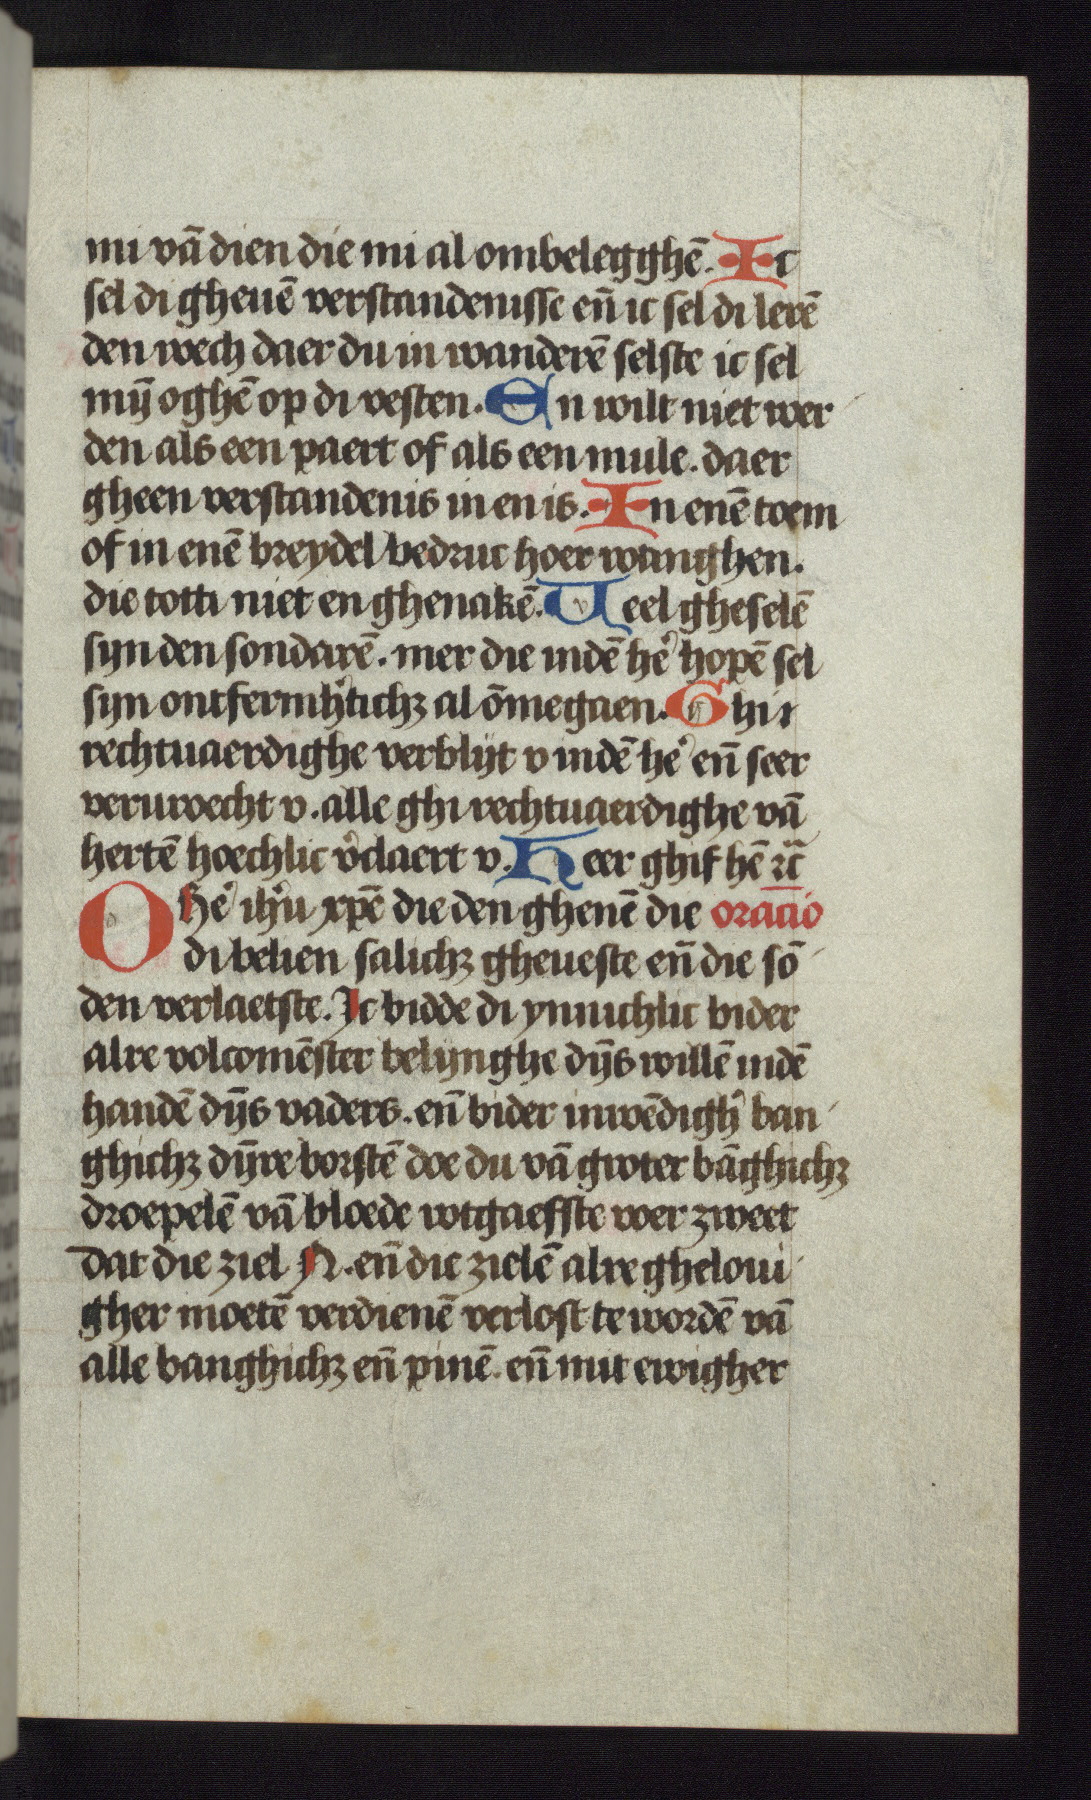 mi vā dien die mi al ombelegghē. Ic
sel di gheuē verstandenisse eñ ic sel di lerē
den wech daer du in wanderē selste ic sel
mȳ oghē op di vesten. En wilt niet wer
den als een paert of als een mule. daer
gheen verstandenis in en is. In enē toem
of in enē breydel bedruc hoer wanghen.
die totti niet en ghenakē. Ueel gheselē
syn den sondarē. mer die indē he᷒ hopē sel
syn ontfermh᷒tichʒ al ōmegaen. Ghi
rechtuaerdighe verblijt v indē he᷒ eñ seer
veruroecht v. alle ghi rechtuaerdighe vā
hertē hoechlic v᷒claert v. Heer ghif hē ꝛc̄
O he᷒ ih᷒u xp̄e die den ghenē die oracio
di belien salichʒ gheueste eñ die sō
den verlaetste. Ic bidde di ynnichlic bider
alre volcomēster belijnghe dȳs willē indē
handē dȳs vaders. eñ bider inwēdigh᷒ ban
ghichʒ dȳre borstē doe du vā groter bāghichʒ
droepelē vā bloede wtgaefste voer zweet
Dat die ziel N. eñ die zielē alre gheloui
gher moetē verdienē verlost te wordē vā
alle banghichʒ eñ pinē. eñ mit ewigher